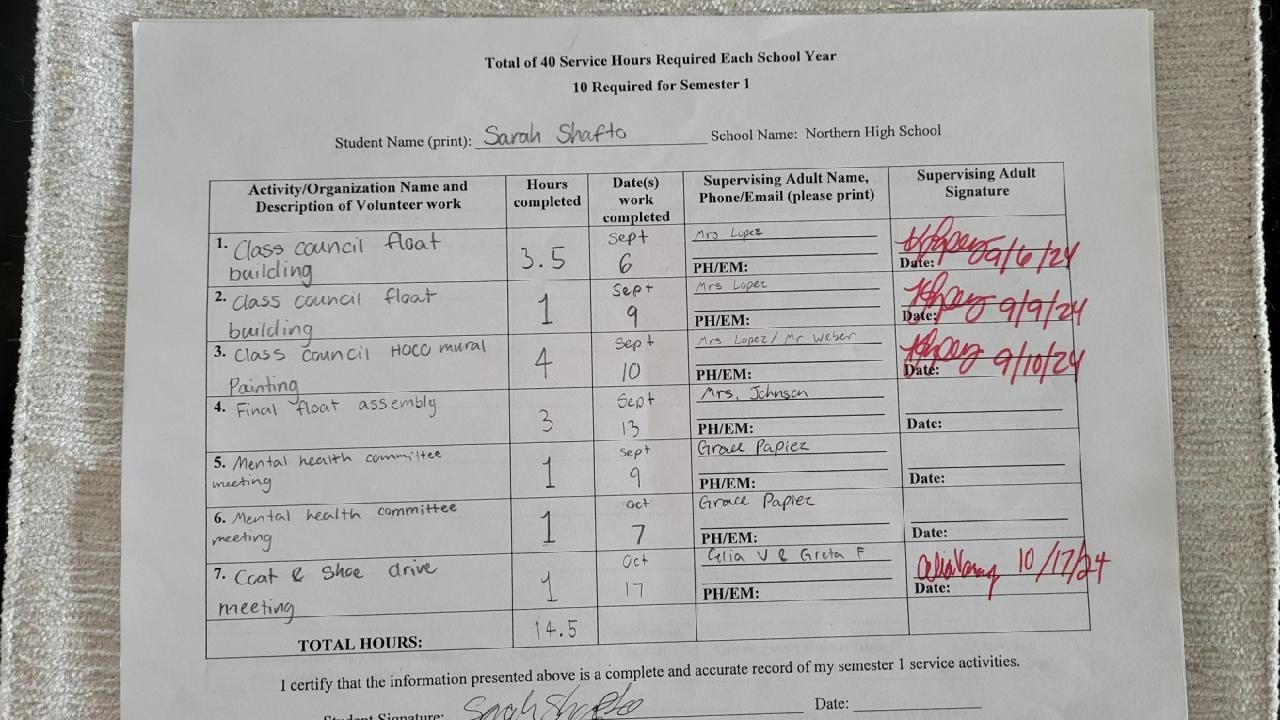 Total of 40 Service Hours Required Each School Year
10 Required for Semester 1
Student Name (print): Sarah Shafto School Name: Northern High School
Activity/Organization Name and Description of Volunteer work
Hours completed
Date(s) work completed
Supervising Adult Name, Phone/Email (please print)
Supervising Adult Signature
1. Class council float
building
3.5
Sept
6
Mrs Lopez
PH/EM:
Date: 9/6/24
2. Class council float
building
1
Sept
9
Mrs Lopez
PH/EM:
Date: 9/9/24
3. Class council HOCO mural
Painting
4
Sept
10
Mrs Lopez / Mr Weber
PH/EM:
Date: 9/10/24
4. Final float assembly
3
Sept
13
Mrs. Johnson
PH/EM:
Date:
5. Mental health committee
meeting
1
Sept
9
Grace Papiez
PH/EM:
Date:
6. Mental health committee
meeting
1
Oct
7
Grace Papiez
PH/EM:
Date:
7. Coat & Shoe drive
meeting
1
Oct
17
Celia V & Greta F
PH/EM:
10/17/24
Date:
TOTAL HOURS:
14.5
I certify that the information presented above is a complete and accurate record of my semester 1 service activities.
Student Signature: Sarah Shafto Date: